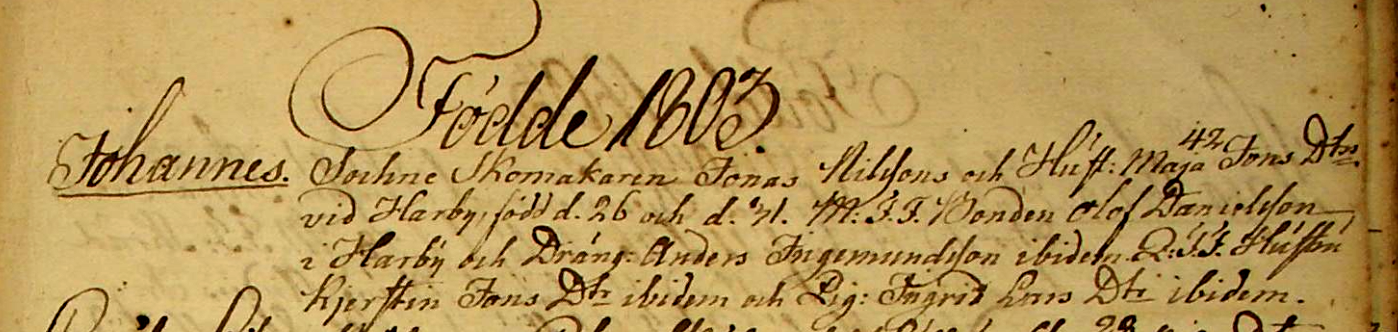 Födde 1803.
Johannes. Sochne Skomakaren Jonas Nilssons och Hust: Maja 42 Jons Dtrs
vid Harby, född d. 26 och d. 31. M: J. F. Bonden Olof Danielsson
i Harby och Dräng: Anders Ingemundsson ibidem. Q: J. F. Hustru
Kjerstin Jons Dtr ibidem och Pig: Ingrid Lars Dtr ibidem.